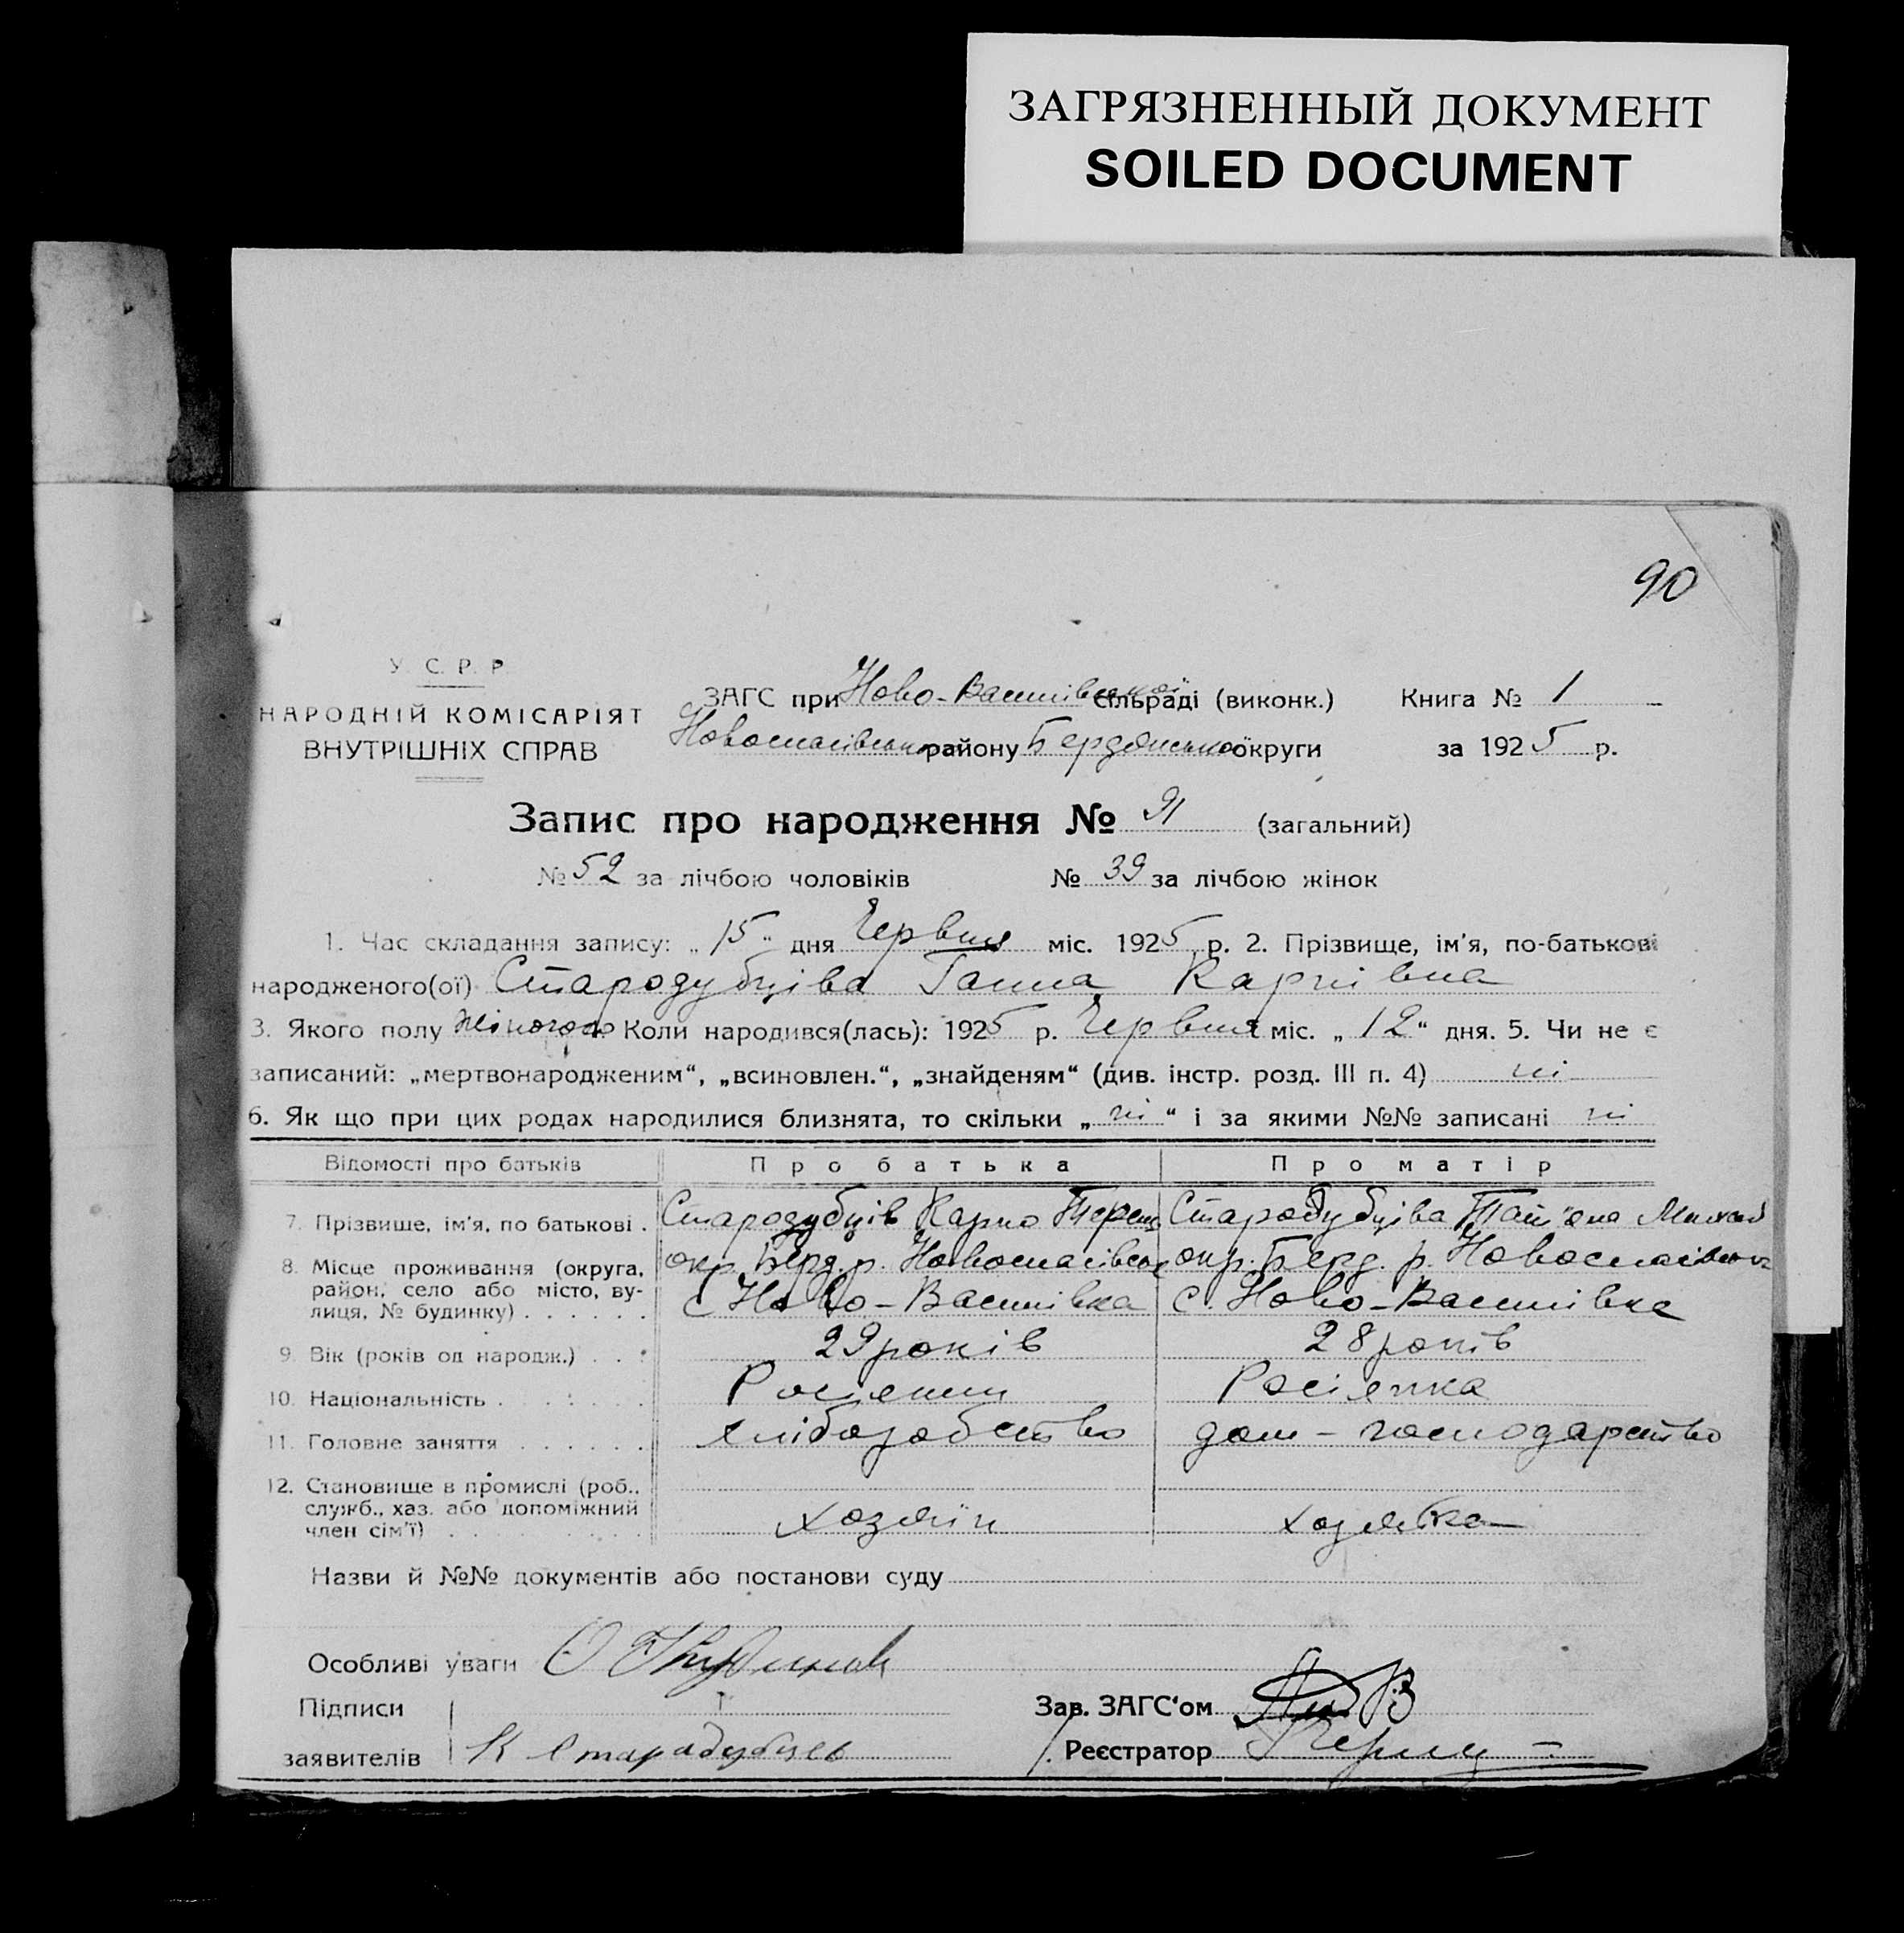 ЗАГРЯЗНЕННЫЙ ДОКУМЕНТ
SOILED DOCUMENT
90
У. С. Р. Р
НАРОДНІЙ КОМІСАРІЯТ
ВНУТРІШНІХ СПРАВ
ЗАГС при Ново-Василівської сільраді (виконк.) Книга № 1
Новоспасівського району Бердянської округи за 1925 р.
Запис про народження № 91 (загальний)
№ 52 за лічбою чоловіків № 39 за лічбою жінок
1. Час складання запису: „15“ дня Червня міс. 1925 р. 2. Прізвище, ім'я, по-батькові
народженого(ої) Стародубціва Ганна Карпівна
3. Якого полу жіночого 4. Коли народився(лась): 1925 р. Червня міс. „12“ дня. 5. Чи не є
записаний: „мертвонародженим“, „всиновлен.“, „знайденям“ (див. інстр. розд. III п. 4) ні
6. Як що при цих родах народилися близнята, то скільки „ні“ і за якими №№ записані ні
Відомості про батьків Про батька Про матір
7. Прізвище, ім'я, по батькові . Стародубців Карпо Терен Стародубціва Тат'яна Михай
8. Місце проживання (округа, район, село або місто, вулиця, № будинку) . . . . . . окр. Берд. р. Новоспасівськ окр. Берд. р. Новоспасівськ
с Ново-Василівка с. Ново-Василівка
9. Вік (років од народж.) . . . 29 років 28 років
10. Національність . . . . . . Росіянин Росіянка
11. Головне заняття . . . . . . хліборобство дом-господарство
12. Становище в промислі (роб.,
служб., хаз. або допоміжний
член сім'ї) . . . . . . . . хозяїн хозяйка
Назви й №№ документів або постанови суду
Особливі уваги
Підписи Зав. ЗАГС'ом
заявителів К Стародубцев Реєстратор